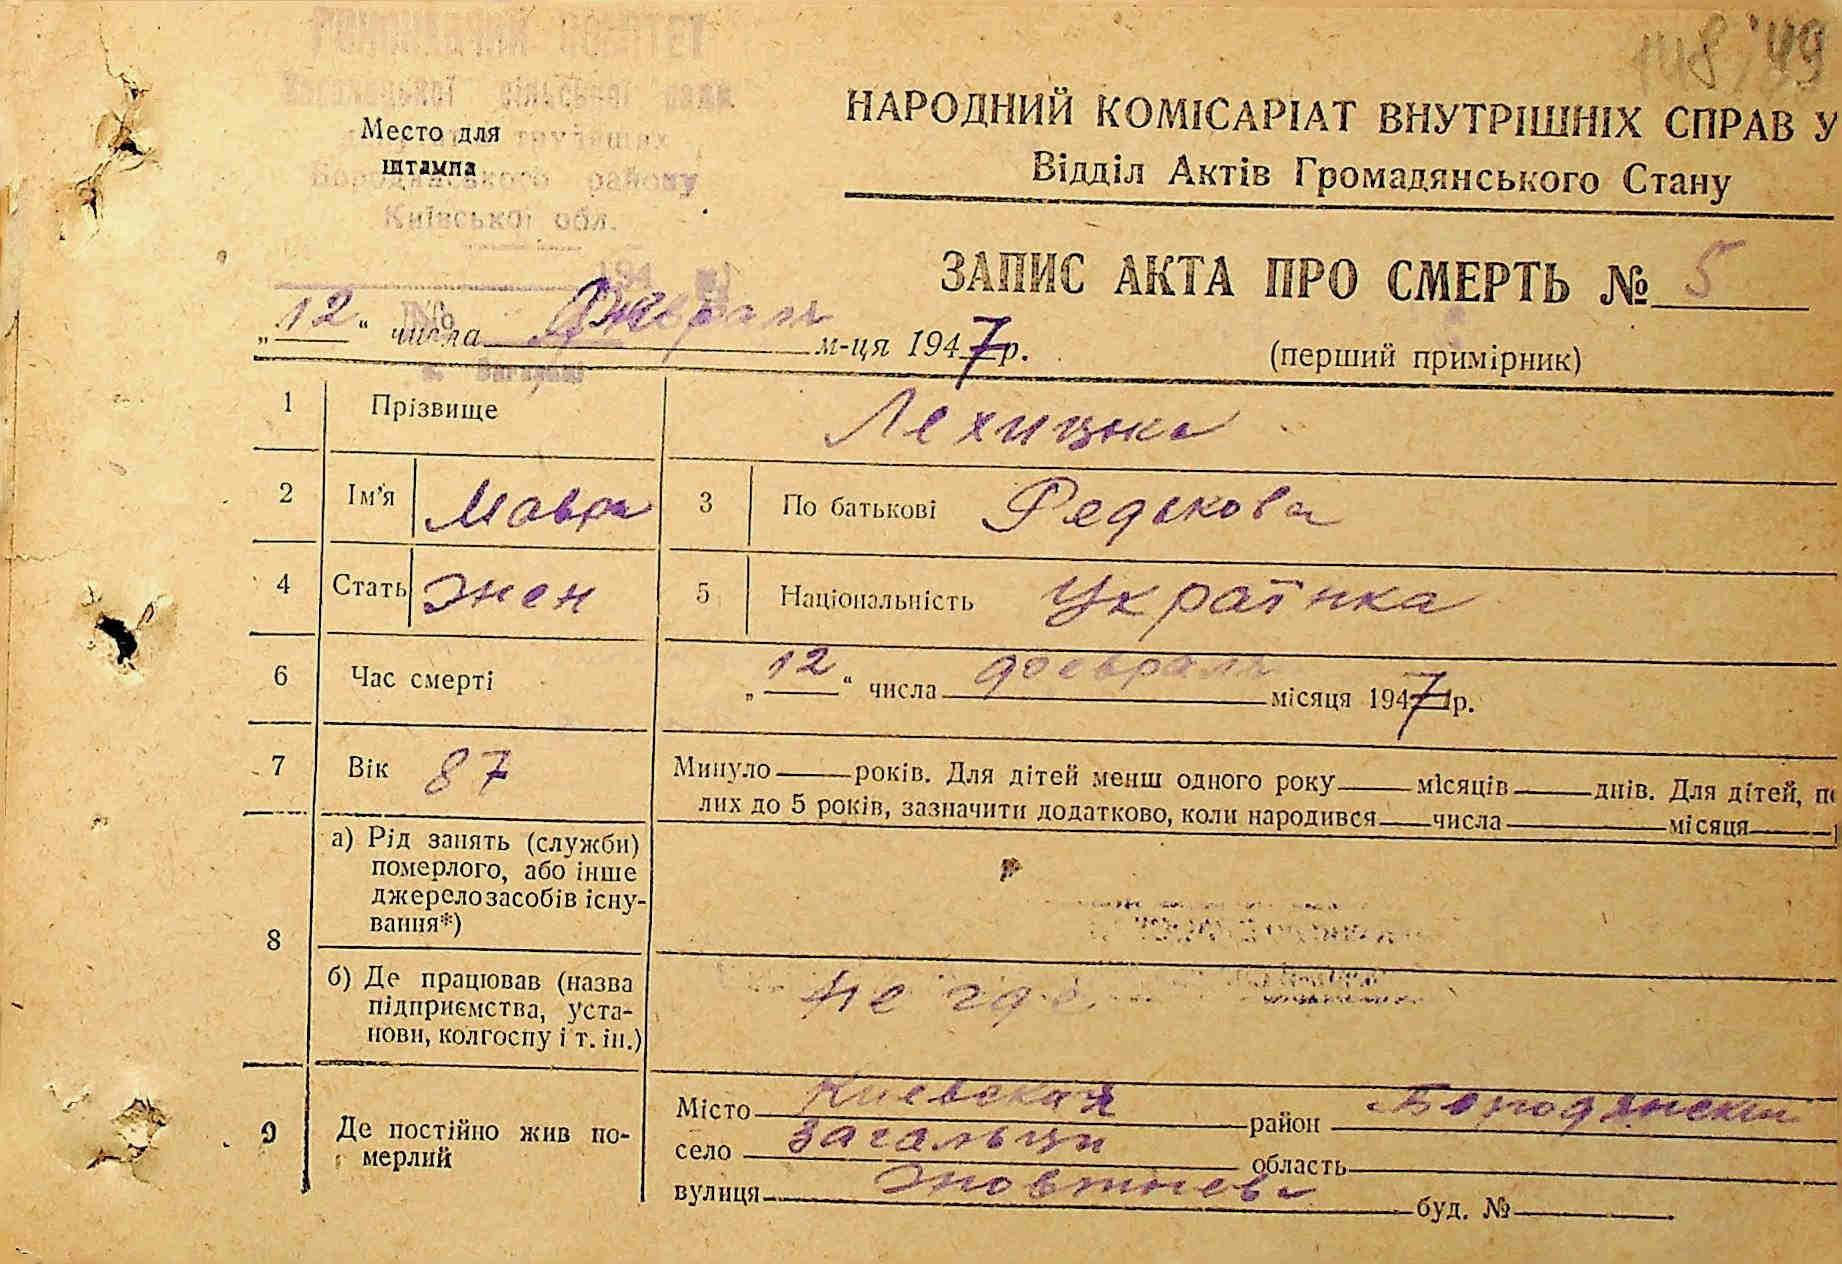 148/49
ВИКОНАВЧИЙ КОМІТЕТ
Загальської сільської ради
депутатів трудящих
Бородянського району
Київської обл.
Место для
штампа
194 р.
№
с. Загальці
НАРОДНИЙ КОМІСАРІАТ ВНУТРІШНІХ СПРАВ У
Відділ Актів Громадянського Стану
ЗАПИС АКТА ПРО СМЕРТЬ № 5
„12“ числа Февраля м-ця 1947 р.
(перший примірник)
1 Прізвище Лехицька
2 Ім'я Мавра 3 По батькові Редькова
4 Стать жен 5 Національність Українка
6 Час смерті „12“ числа февраля місяця 1947 р.
7 Вік 87 Минуло ___ років. Для дітей менш одного року ___ місяців ___ днів. Для дітей, по
лих до 5 років, зазначити додатково, коли народився ___ числа ___ місяця ___
8 а) Рід занять (служби)
померлого, або інше
джерело засобів існу-
вання*)
б) Де працював (назва
підприємства, уста-
нови, колгоспу і т. ін.) не где
9 Де постійно жив по-
мерлий
Місто Киевская район Бородянский
село Загальци область
вулиця Жовтнева буд. №